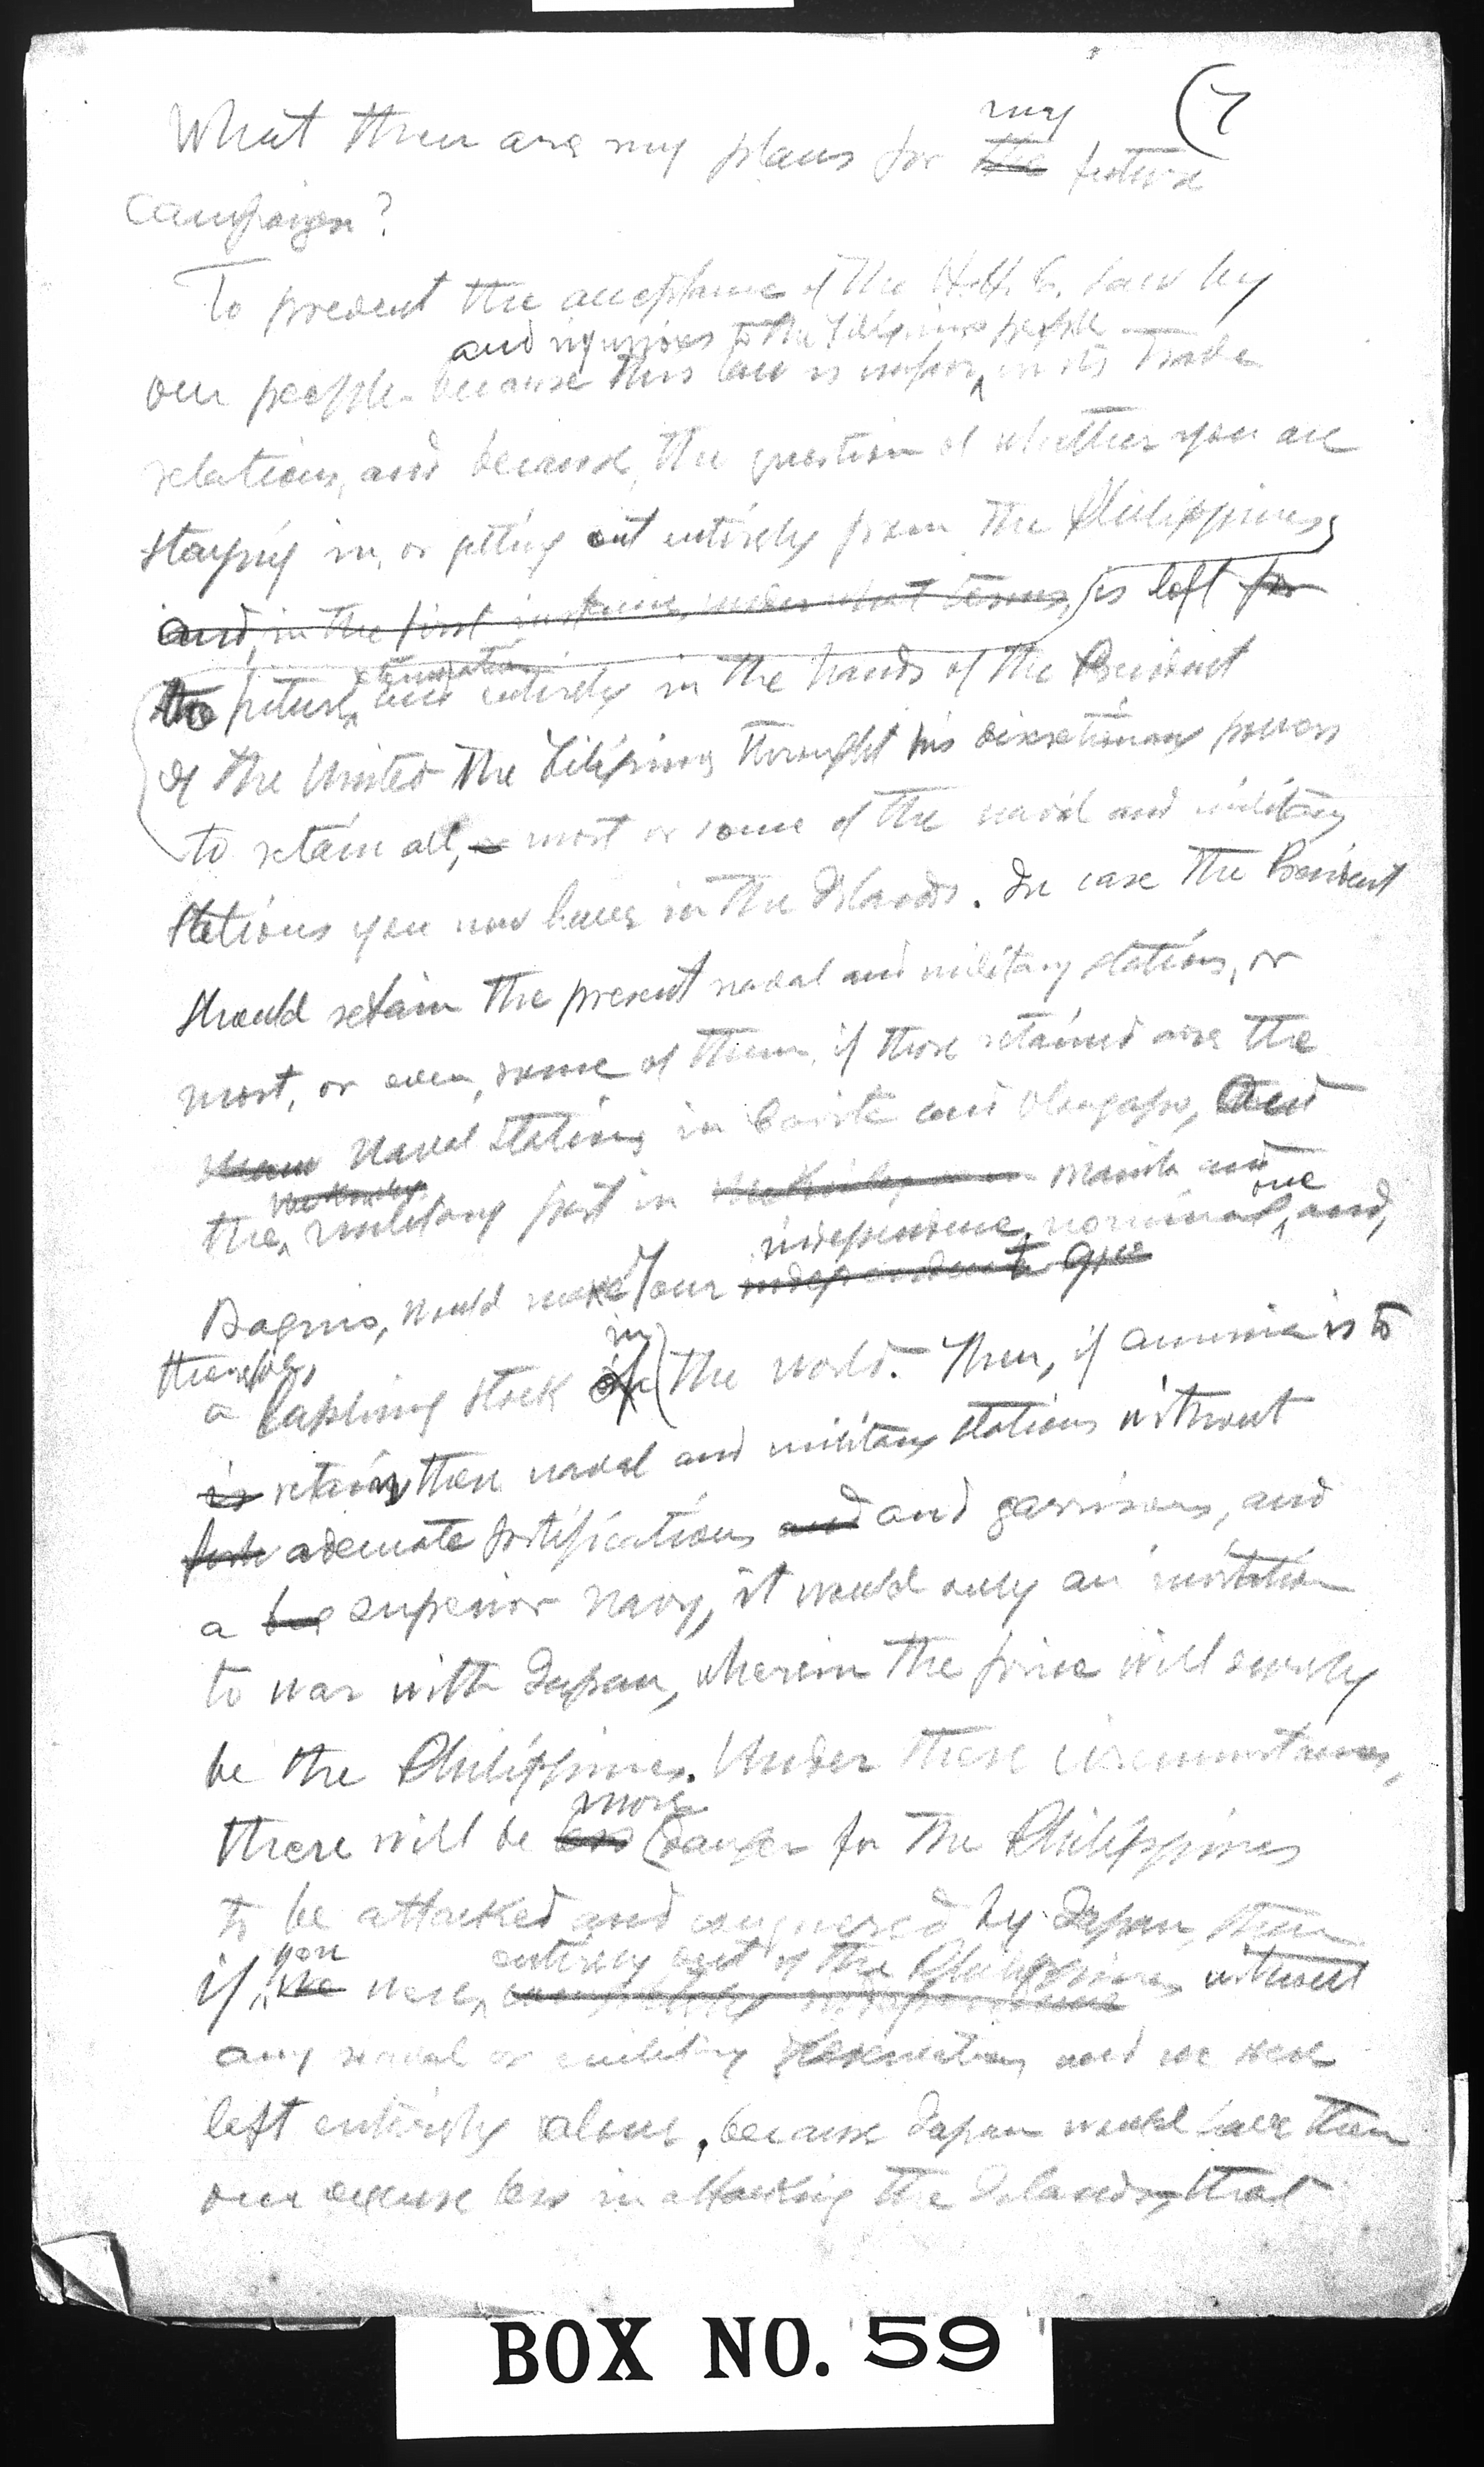 (7
my
What then are my plans for the future
campaign?
To prevent the acceptance of the H.H.C. law by
and injurious to the Filipino people
our people because this law is unfair in its trade
relations, and because, the question of whether you are
staying in, or getting out entirely from the Philippines,
and, in the first instance, under what terms, is left for
the future, and entirely in the hands of the President
of the United the Filipinos throught his discretionary powers
to retain all, or most or some of the naval and military
stations you now have in the Islands. In case the President
should retain the present naval and military stations, or
most, or even, some of them, if those retained are the
naval stations in Cavite and Olongapo, and
McKinley
the military post in McKinley Manila and
independence, nominal one, and,
Baguio, would make your independent give
therefore, in
a laphing stock of the world. Then, if America is to
is retain these naval and military stations without
forti adecuate fortifications and and garrisons, and
a big superior navy, it would only an invitation
to war with Japan, wherein the price will surely
be the Philippines. Under these circumstances,
more
there will be less danger for the Philippines
to be attacked and conquered by Japan, than
you entirely out of the Philippines without
if we were completely independence
any naval or military reservation and we were
left entirely alone, because Japan would have then
one excuse less in attacking the Islands, that
BOX NO. 59